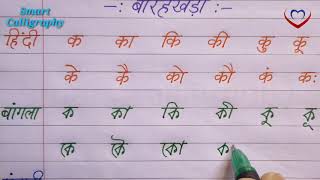 Smart
Calligraphy
-: बारहखड़ी :-
हिंदी क का कि की कु कू
के कै को कौ कं कः
बांगला ক কা কি কী কু কূ
কে কৈ কো ক